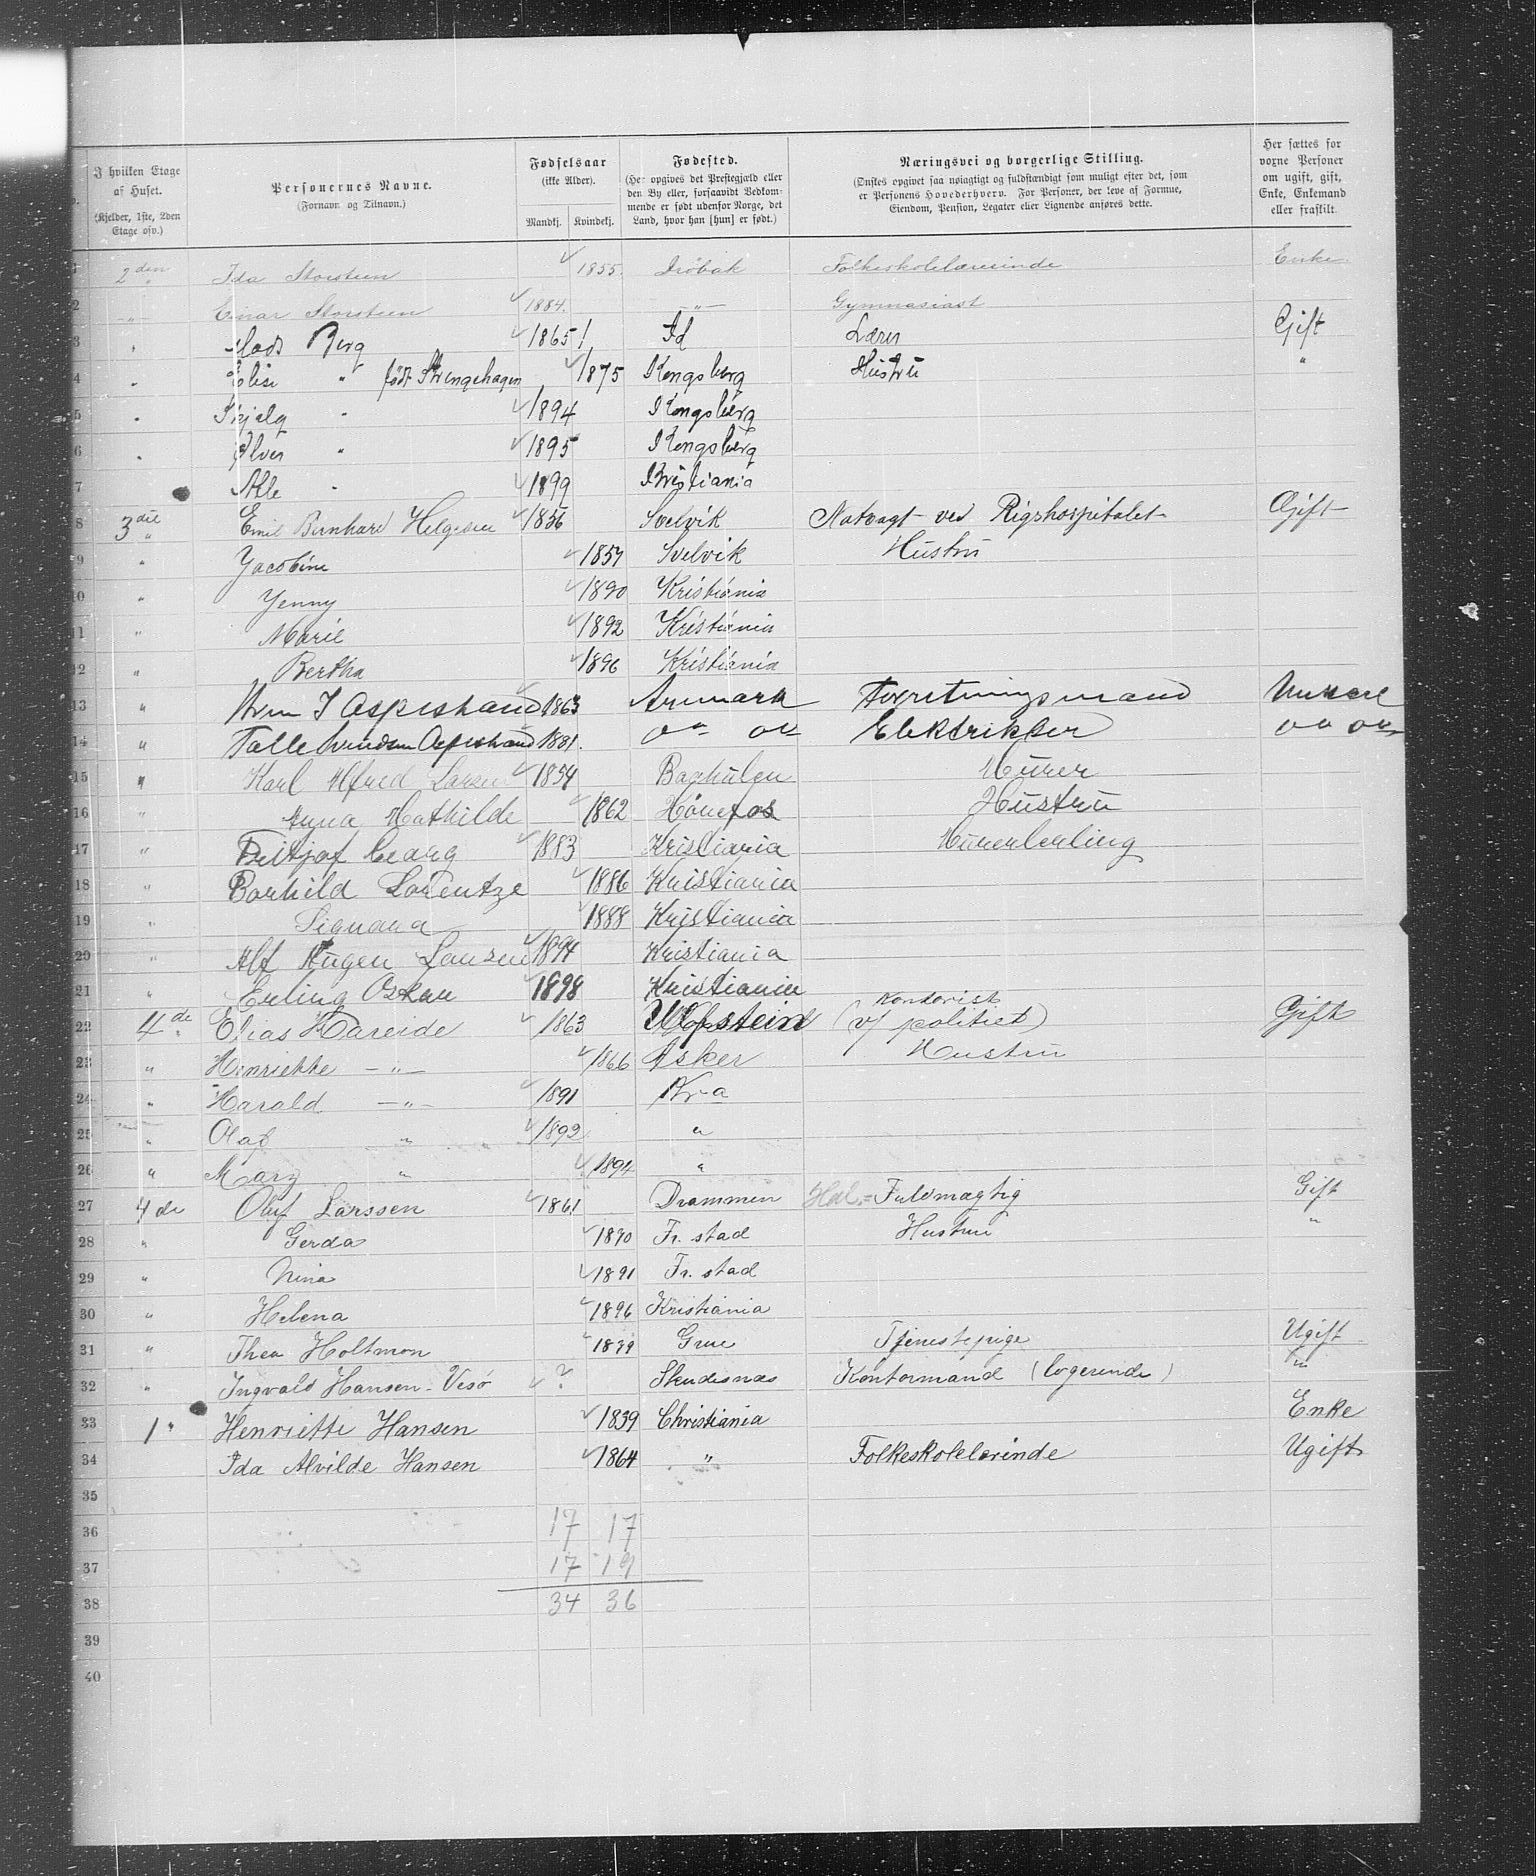 I hvilken Etage af Huset. (Kjelder, 1ste, 2den Etage osv.)
Personernes Navne. (Fornavn og Tilnavn.)
Fødselsaar (ikke Alder). Mandkj. Kvindekj.
Fødested. (Her opgives det Prestegjæld eller den By eller, forsaavidt Vedkommende er født udenfor Norge, det Land, hvor han [hun] er født.)
Næringsvei og borgerlige Stilling. (Ønskes opgivet saa nøiagtigt og fuldstændigt som muligt efter det, som er Personens Hovederhverv. For Personer, der leve af Formue, Eiendom, Pension, Legater eller Lignende anføres dette.)
Her sættes for voxne Personer om ugift, gift, Enke, Enkemand eller fraskilt.
1 2den Ida Storsteen 1855. Drøbak Folkeskolelærerinde Enke
2 " Einar Storsteen 1884. — " — Gymnasiast
3 " Mads Berg 1865! Id Lærer Gift
4 " Elise " født Strengehagen 1875 Kongsberg Hustru "
5 " Skjalg " 1894 Kongsberg
6 " Ølver " 1895 Kongsberg
7 " Atle " 1899 Kristiania
8 3die " Emil Bernhard Helgesen 1856 Svelvik Natvagt ved Rigshospitalet Gift
9 " Jacobine 1859 Svelvik Hustru
10 " Jenny 1890 Kristiania
11 " Marie 1892 Kristiania
12 " Bertha 1896 Kristiania
13 " Hrm J Aspestrand 1863 Aremark Forretningsmand
14 " Aspestrand 1881. Elektriker
15 " Karl Alfred Larsen 1854 Murer
16 " Anna Mathilde 1862 Hønefos Hustru
17 " Fritjof Georg 1883 Kristiania Murerlerling
18 " Borhild Lorentze 1886 Kristiania
19 " Signora 1888 Kristiania
20 " Alf Augen Larsen 1894 Kristiania
21 " Erling Oskar 1898 Kristiania
22 4de " Elias Hareide 1863 Ulfstein Kontorist (v/ politiet) Gift
23 " Henriette — " — 1866 Asker Hustru
24 " Harald — " — 1891 Kr-a
25 " Olaf " 1892 "
26 " Mary " 1894 "
27 4de Oluf Larssen 1861 Drammen Fuldmægtig Gift
28 " Gerda 1870 Fr.stad Hustru "
29 " Nina 1891 Fr.stad
30 " Helena 1896 Kristiania
31 " Thea Holtmon 1879 Grue Tjenestepige Ugift
32 " Ingvald Hansen-Vesø ? Skudesnæs Kontormand (logerende) "
33 1 " Henriette Hansen 1839 Christiania Enke
34 Ida Alvilde Hansen 1864 " Folkeskolelærinde Ugift
35
36 17 17
37 17 19
38 34 36
39
40